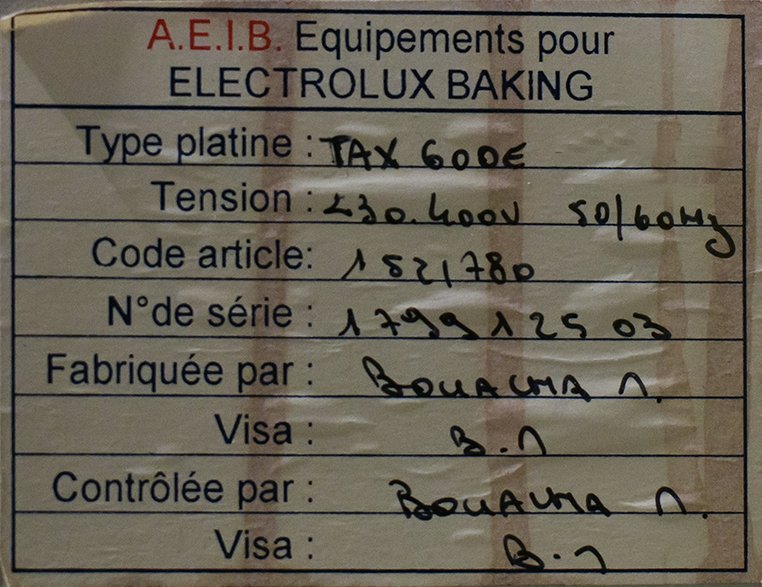 A.E.I.B. Equipements pour
ELECTROLUX BAKING
Type platine : TAX 600E
Tension : 230.400V 50/60Hz
Code article: 1521780
N°de série : 1799125 03
Fabriquée par : BOUACHA M.
Visa : B.M
Contrôlée par : BOUACHA M.
Visa : B.M